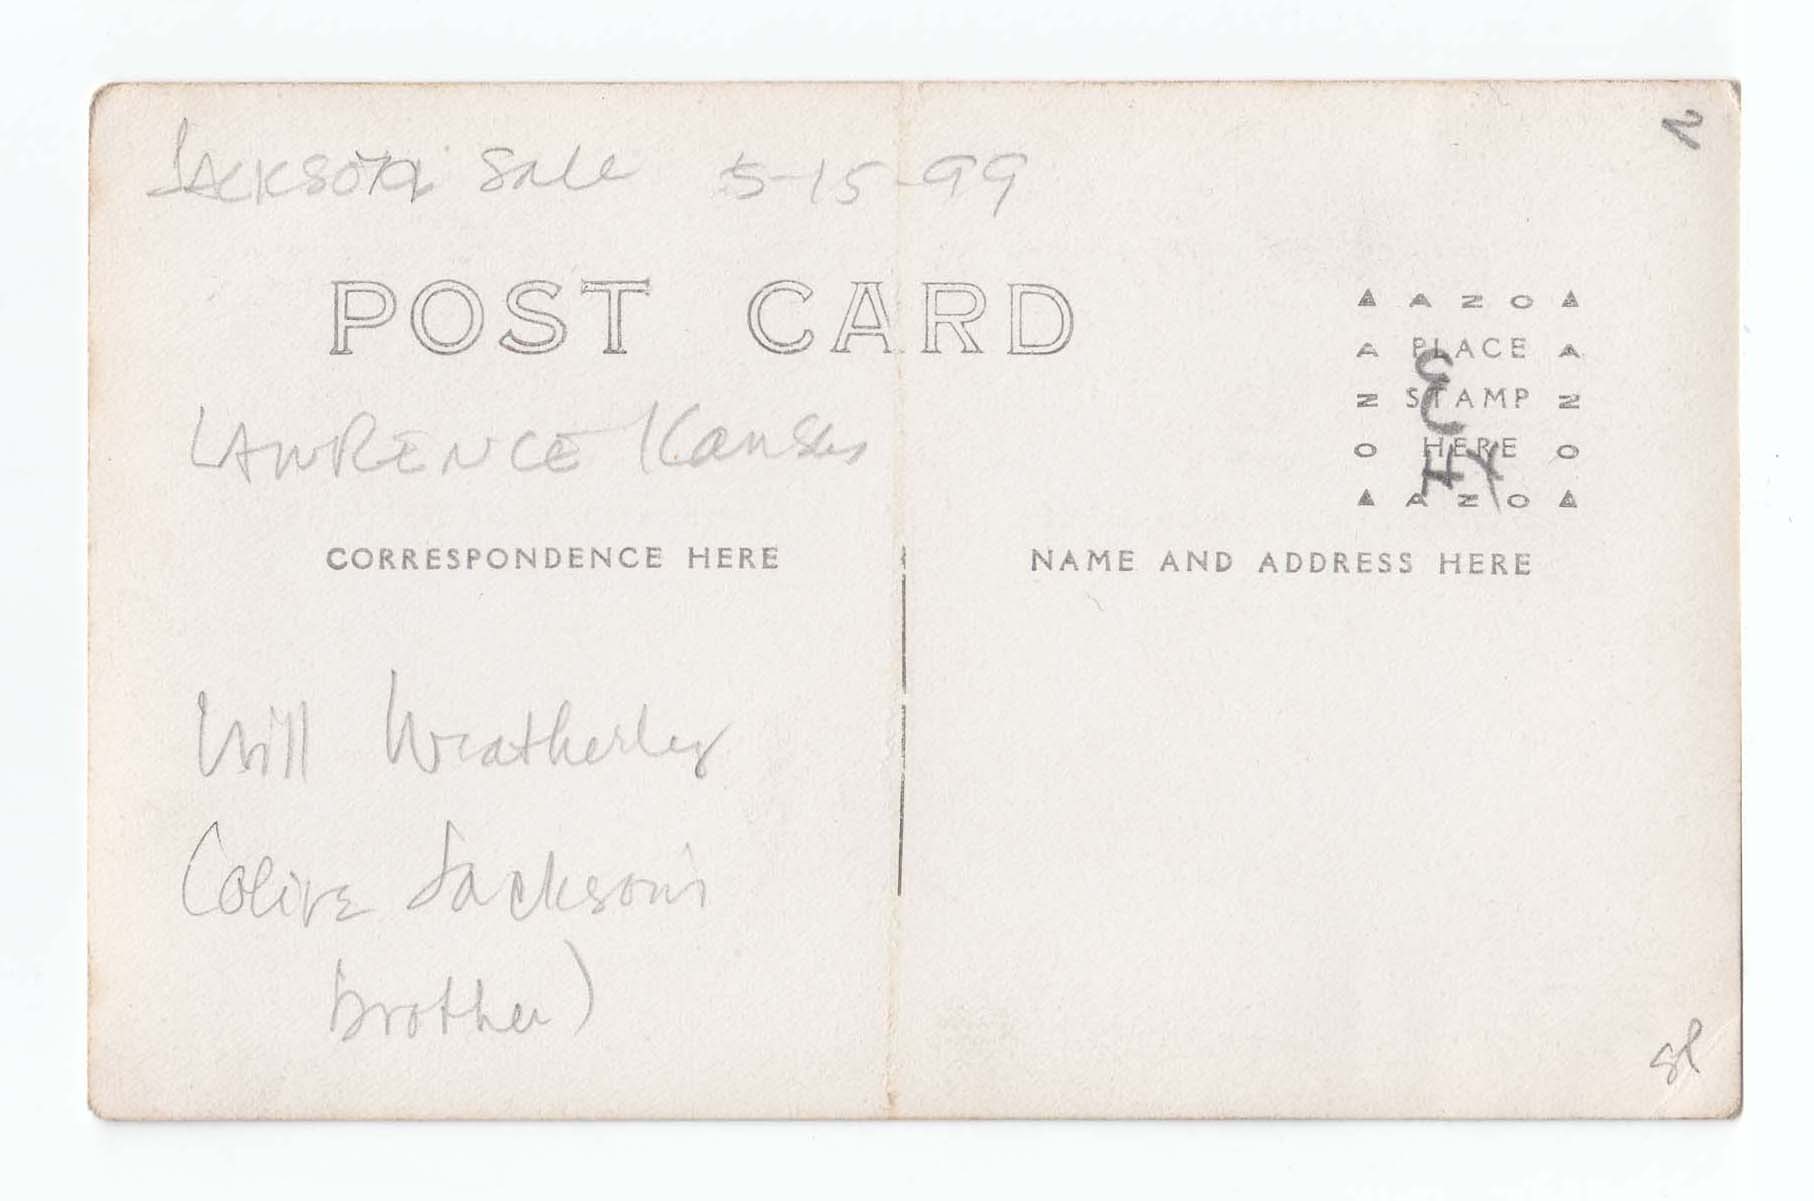 Jackson Sale 5-15-99
POST CARD
▲ A Z O ▲
A PLACE A
Z STAMP Z
O HERE O
▲ A Z O ▲
LAWRENCE Kansas
CORRESPONDENCE HERE
NAME AND ADDRESS HERE
Will Weatherley
(Olive Jackson's
brother)